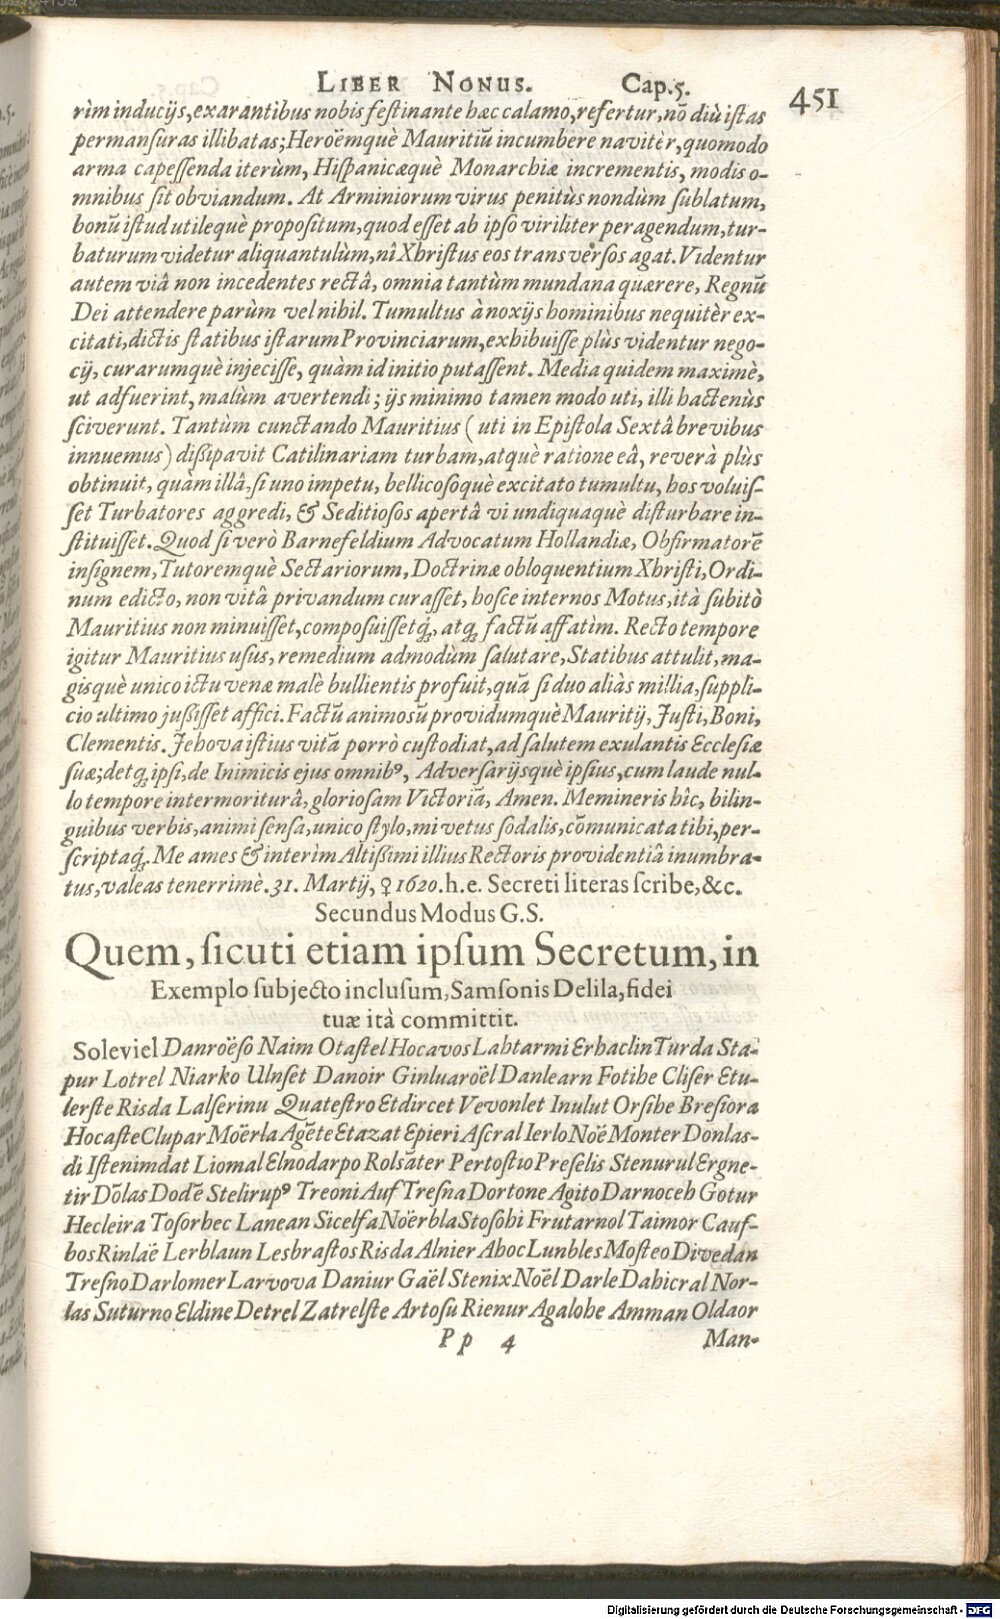 LIBER NONUS. Cap.5. 451
rìm inducijs, exarantibus nobis festinante hæc calamo, refertur, nō diù istas
permansuras illibatas; Heroëmquè Mauritiū incumbere navitèr, quomodo
arma capessenda iterùm, Hispanicæquè Monarchiæ incrementis, modis o-
mnibus sit obviandum. At Arminiorum virus penitùs nondùm sublatum,
bonū istud utilequè propositum, quod esset ab ipso viriliter peragendum, tur-
baturum videtur aliquantulùm, nî Xhristus eos transversos agat. Videntur
autem viâ non incedentes rectâ, omnia tantùm mundana quærere, Regnū
Dei attendere parùm vel nihil. Tumultus à noxijs hominibus nequitèr ex-
citati, dictis statibus istarum Provinciarum, exhibuisse plùs videntur nego-
cij, curarumquè injecisse, quàm id initio putassent. Media quidem maximè,
ut adfuerint, malùm avertendi; ijs minimo tamen modo uti, illi hactenùs
sciverunt. Tantùm cunctando Mauritius (uti in Epistola Sextâ brevibus
innuemus) dissipavit Catilinariam turbam, atquè ratione eâ, reverà plùs
obtinuit, quàm illâ, si uno impetu, bellicosoquè excitato tumultu, hos voluis-
set Turbatores aggredi, & Seditiosos apertâ vi undiquaquè disturbare in-
stituisset. Quod si verò Barnefeldium Advocatum Hollandiæ, Obfirmatorē
insignem, Tutoremquè Sectariorum, Doctrinæ obloquentium Xhristi, Ordi-
num edicto, non vitâ privandum curasset, hosce internos Motus, ità subitò
Mauritius non minuisset, composuissetq́;, atq; factū affatìm. Recto tempore
igitur Mauritius usus, remedium admodùm salutare, Statibus attulit, ma-
gisquè unico ictu venæ malè bullientis profuit, quā si duo aliàs millia, suppli-
cio ultimo jussisset affici. Factū animosū providumquè Mauritij, Justi, Boni,
Clementis. Jehova istius vitā porrò custodiat, ad salutem exulantis Ecclesiæ
suæ; detq́; ipsi, de Inimicis ejus omnibꝰ, Adversarijsquè ipsius, cum laude nul-
lo tempore intermoriturâ, gloriosam Victoriā, Amen. Memineris hîc, bilin-
guibus verbis, animi sensa, unico stylo, mi vetus sodalis, cōmunicata tibi, per-
scriptaq́;. Me ames & interìm Altissimi illius Rectoris providentiâ inumbra-
tus, valeas tenerrimè. 31. Martij, ♀ 1620. h.e. Secreti literas scribe, &c.
Secundus Modus G.S.
Quem, sicuti etiam ipsum Secretum, in
Exemplo subjecto inclusum, Samsonis Delila, fidei
tuæ ità committit.
Soleviel Danroëso Naim Otastel Hocavos Lahtarmi Erhaclin Turda Sta-
pur Lotrel Niarko Ulnset Danoir Ginluaroël Danlearn Fotihe Cliser Etu-
lerste Risda Lalserinu Quatestro Etdircet Vevonlet Inulut Orsihe Bresiora
Hocaste Clupar Moërla Agēte Etazat Epieri Ascral Ierlo Noë Monter Donlas-
di Istenimdat Liomal Elnodarpo Rolsāter Pertostio Preselis Stenurul Ergne-
tir Dōlas Dodē Stelirupꝰ Treoni Auf Tresna Dortone Agito Darnoceh Gotur
Hecleira Tosorhec Lanean Sicelfa Noërbla Stosohi Frutarnol Taimor Cauf-
bos Rinlaë Lerblaun Lesbrastos Risda Alnier Ahoc Lunbles Mosteo Divedan
Tresno Darlomer Larvova Daniur Gaël Stenix Noël Darle Dahicral Nor-
las Suturno Eldine Detrel Zatrelste Artosu Rienur Agalohe Amman Oldaor
Pp 4 Man-
Digitalisierung gefördert durch die Deutsche Forschungsgemeinschaft - DFG